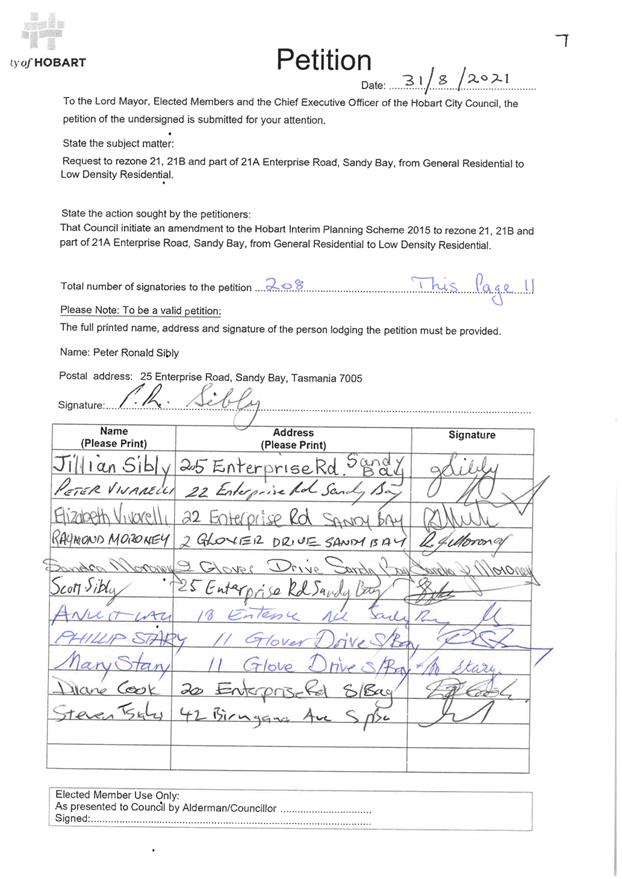 7
ty of HOBART
Petition
Date: 31/8/2021
To the Lord Mayor, Elected Members and the Chief Executive Officer of the Hobart City Council, the
petition of the undersigned is submitted for your attention.
State the subject matter:
Request to rezone 21, 21B and part of 21A Enterprise Road, Sandy Bay, from General Residential to
Low Density Residential.
State the action sought by the petitioners:
That Council initiate an amendment to the Hobart Interim Planning Scheme 2015 to rezone 21, 21B and
part of 21A Enterprise Road, Sandy Bay, from General Residential to Low Density Residential.
Total number of signatories to the petition 208 This Page 11
Please Note: To be a valid petition:
The full printed name, address and signature of the person lodging the petition must be provided.
Name: Peter Ronald Sibly
Postal address: 25 Enterprise Road, Sandy Bay, Tasmania 7005
Signature: P.R. Sibly
Name Address Signature
(Please Print) (Please Print)
Jillian Sibly 25 Enterprise Rd. Sandy Bay JSibly
PETER VIVARELLI 22 Enterprise Rd Sandy Bay
Elizabeth Vivarelli 22 Enterprise Rd SANDY BAY
RAYMOND MORONEY 2 GLOVER DRIVE SANDY BAY R J Moroney
Sandra Moroney 2 Glover Drive Sandy Bay Sandra J Moroney
Scott Sibly 25 Enterprise Rd Sandy Bay
18
PHILLIP STARY 11 Glover Drive S/Bay
Mary Stary 11 Glove Drive S/Bay M Stary
Diane Cook 20 Enterprise Rd S/Bay Cook
Steven 42 Ave
Elected Member Use Only:
As presented to Council by Alderman/Councillor
Signed: